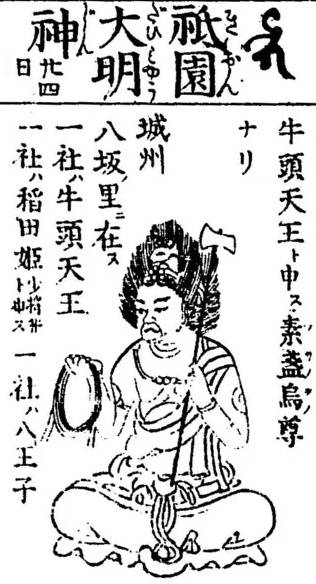 祇園
大明
神
廿四
日
ぎおん
だいミやう
じん
牛頭天王ト申ス素盞烏尊
ナリ
城州
八坂ノ里ニ在ス
一社ハ牛頭天王
一社ハ稲田姫 少将井ト申ス 一社ハ八王子